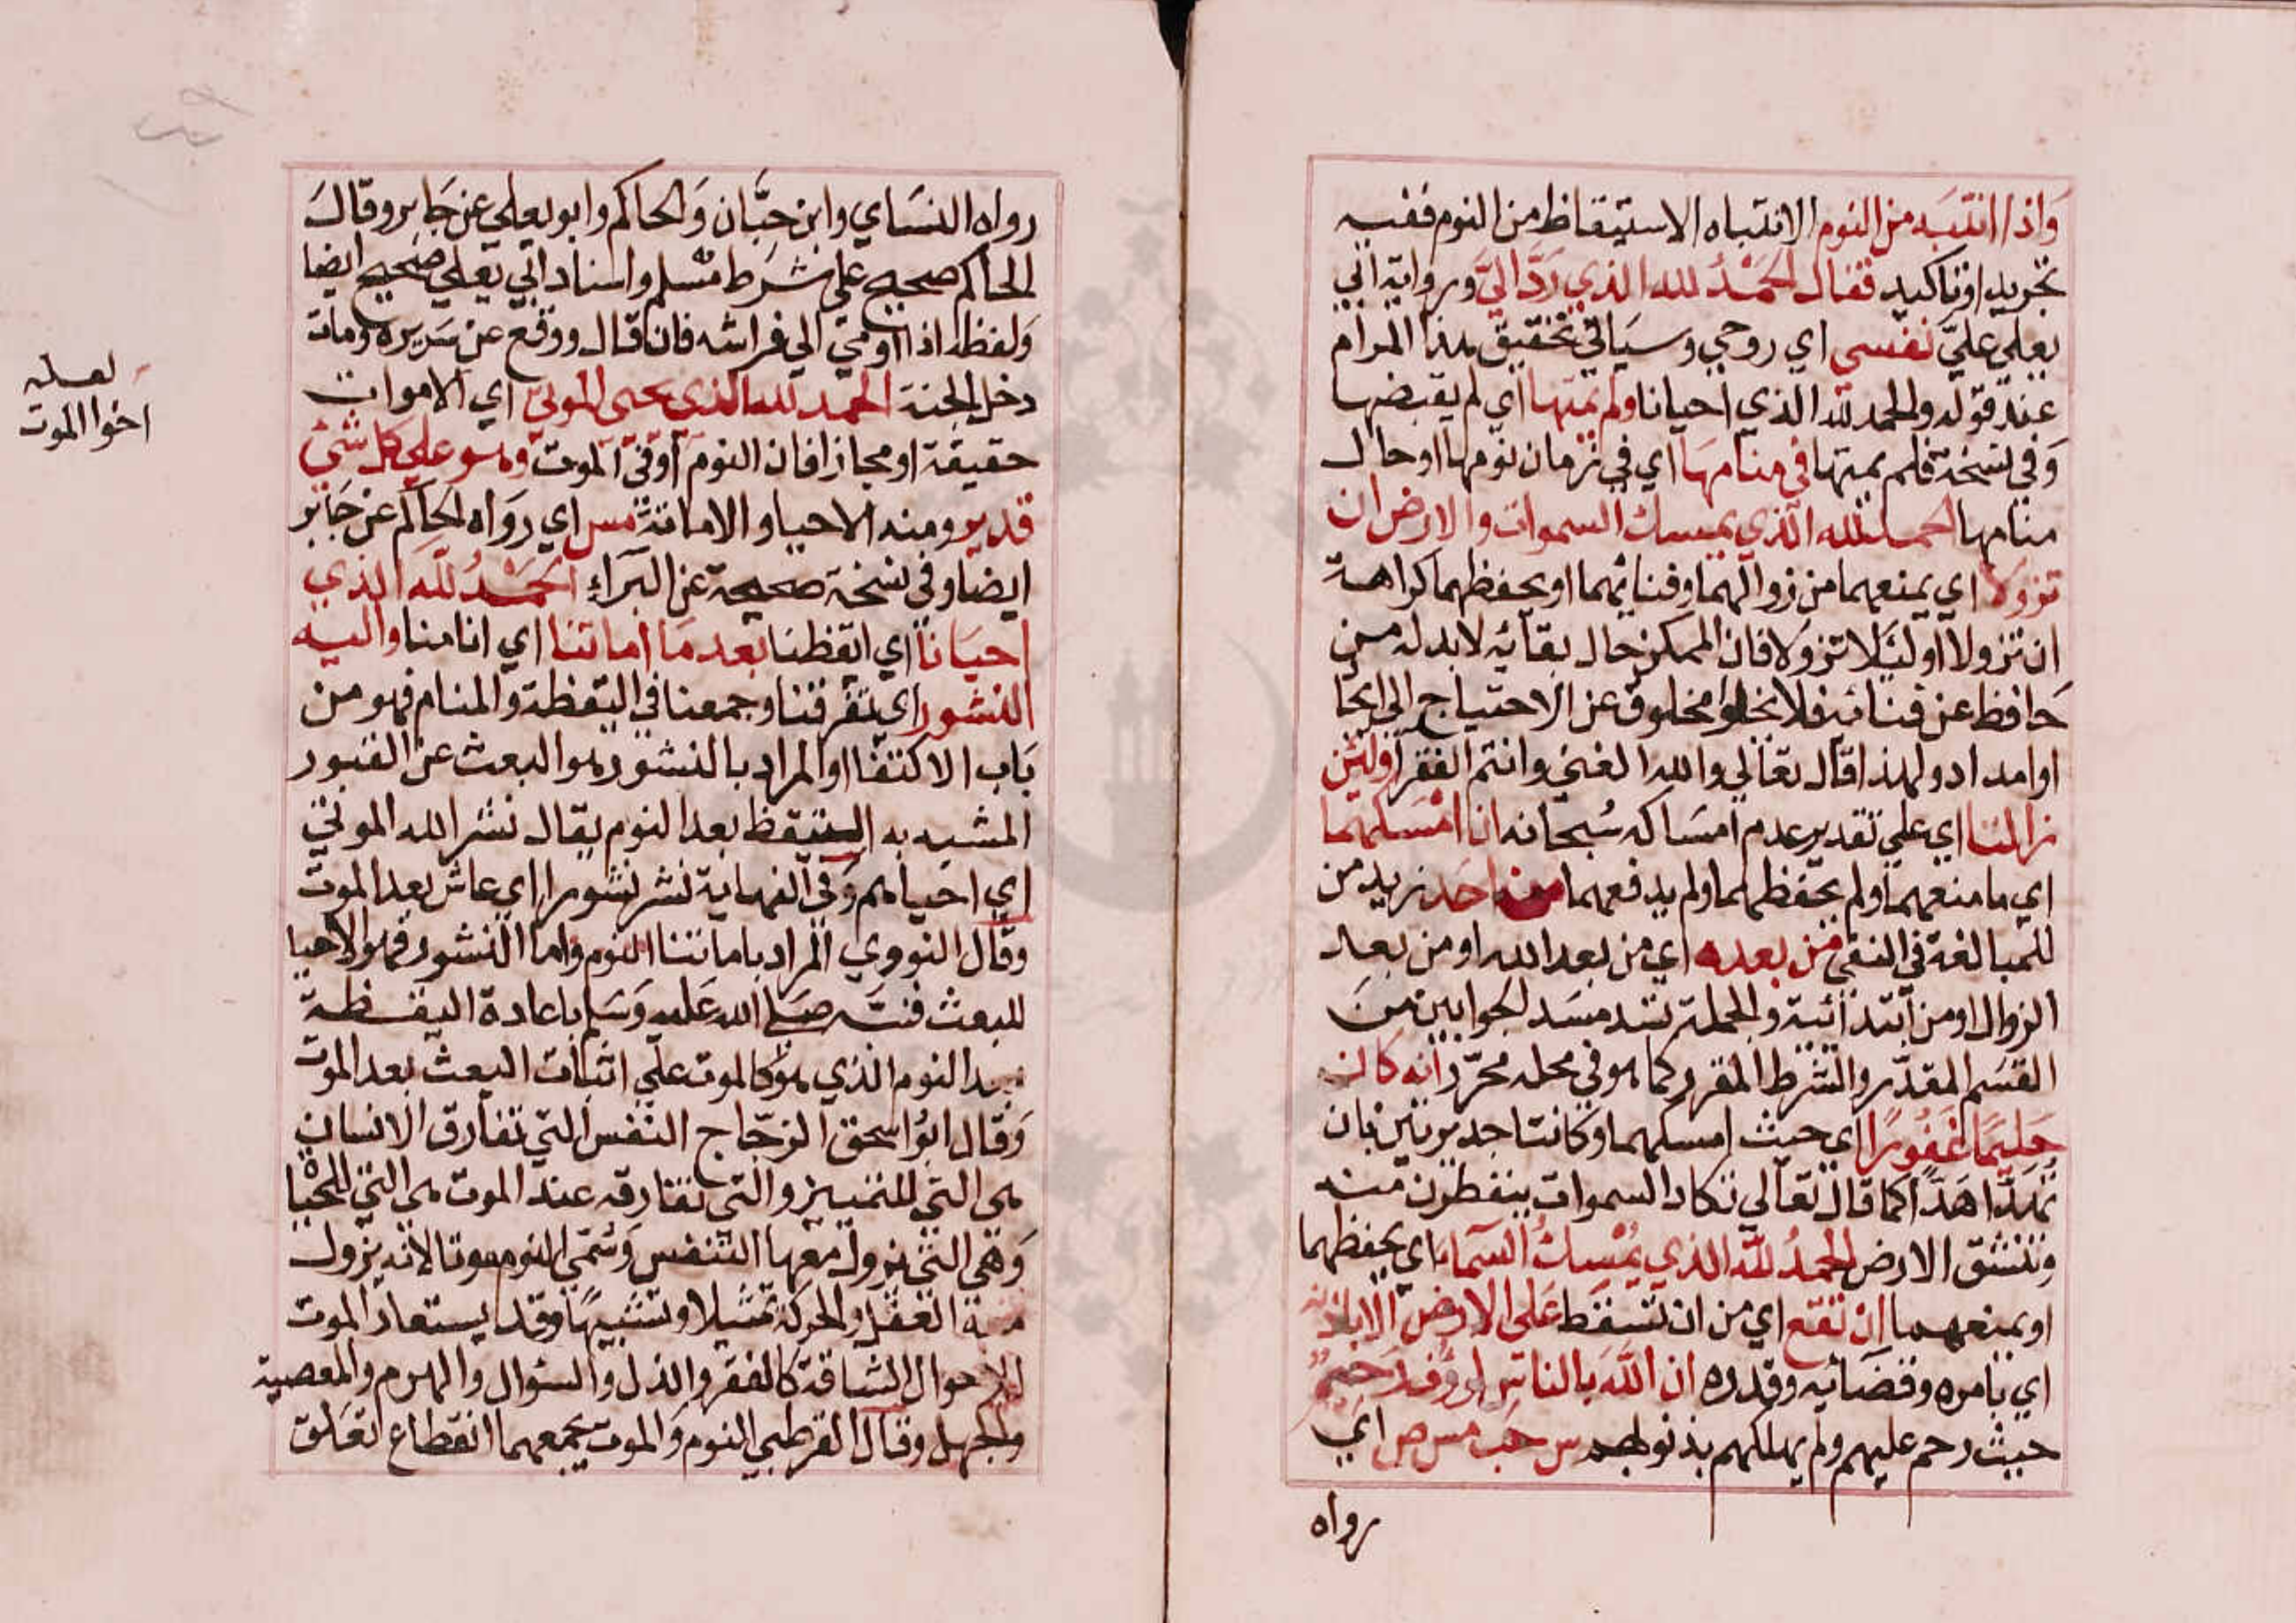 وَاذا انتبَه من النوم الانتباه الاستيقاظ من النوم ففيه
تجريد او تاكيد فقال الحَمْدُ لله الذي رَدَّ اليَّ ورواية ابي
يعلي عليّ نفسى اي روحي وسيَاتي تحقيق هذا المرام
عند قوله والحمد لله الذي احيانا ولم يمتها اي لم يقبضها
وَفي نسخة فلم يمتها في منامهَا اي في زمان نومها او حال
منامها الحمد لله الذي يمسك السموات والارض ان
تزولا اي يمنعهما من زوالهما وفنائهما او يحفظهما كراهة
ان تزولا او ليَلا تزولا فان الممكن حال بقائه لا بد له من
حَافظ عن فنائه فلا يخلوا مخلوق عن الاحتياج الي ايجا
او امداد ولهذا قال تعالي والله الغني وانتم الفقرا ولئن
زالتا اي علي تقدير عدم امسَاكه سُبحانه ان امْسَكهما
اي ما منعهما ولم يحفظهما ولم يدفعهما من احَد زيد من
للمبالغة في النفي من بعده اي من بعد الله او من بعد
الزوال او من ابتدائية والجملة تسد مسَد الجوابين منَ
القسَم المقدّر والشرط المقرر كما هو في محله محرّر انه كان
حَليمًا غَفُورًا اي حيث امسكهما وكانتا جديرتين بان
تهَدَّا هَدّا كما قال تعالي تكاد السموات يتفطرن منه
وتنشق الارض الحمدُ لله الذي يُمْسِكُ السّمآء اي يحفظهما
او يمنعهما انْ تقع اي من ان تسقط عَلى الارض الا باذنه
اي بامره وقضَائه وقدره ان الله بالناس لرؤف رَحيمٌ
حيث رحم عليهم ولم يهلكهم بذنوبهم س حب مس ص اي
رواه
رواه النسَاي وابن حبَّان وَالحاكم وابو يعلي عن جَابر وقالَ
الحاكم صحيح علي شرَط مسْلم واسناد ابي يَعلي صَحيح ايضا
وَلفظه اذا اومي الي فراشه فان قال ووقع عن سَريره ومات
دخل الجنة الحمد لله الذي يحيى الموتي اي الاموات
حقيقة او مجازا فان النوم اوفي الموت وهو علي كل شئ
قدير ومنه الاحيا والاماتة مس اي روَاه الحاكم عن جَابر
ايضا وفي نسخة صحيحة عن البَرَاءِ الحَمْدُ لله الذي
احيَانا اي ايقظنا بعد مَا اماتنا اي انامنا واليه
النشور اي تفرقنا وجمعنا في اليقظة والمنام فهو من
بَاب الاكتفا او المراد بالنشور هو البعث عن القبور
المشبه به التيقظ بعد النوم يقال نشر الله الموتي
اي احياهم وَفي النهاية نشر نشورا اي عاش بعد الموت
وقال النووي المراد باماتتنا النوم واما النشور فهو الاحيا
للبعث فنبّه صَلي الله عَليه وَسَلم باعادة اليقظة
بعد النوم الذي هو كالموت علي اثبات البعث بعد الموت
وَقال ابُو اسحق الزجّاج النفس التي تفارق الانسان
هى التي للتمييز والتي تفارقه عند الموت هى التي للحيٰا
وَهي التي يزول معها التنفس وَسُمّي النوم موتا لانه يزول
منه العقل والحركة تمثيلا وتشبيهًا وقد يستعار الموت
للاحوال الشاقة كالفقر والذل والسؤال والهرم والمعصية
والجهل وقال القرطبي النوم وَالموت يجمعهما انقطاع تعَلق
لعله
اخوا الموت